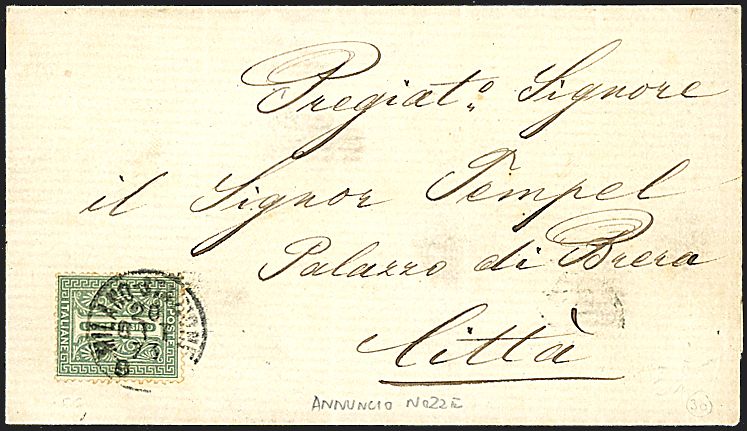 Pregiat.o Signore
il Signor Tempel
Palazzo di Brera
Città
POSTE
ITALIANE
MILANO
ANNUNCIO NOZZE
30